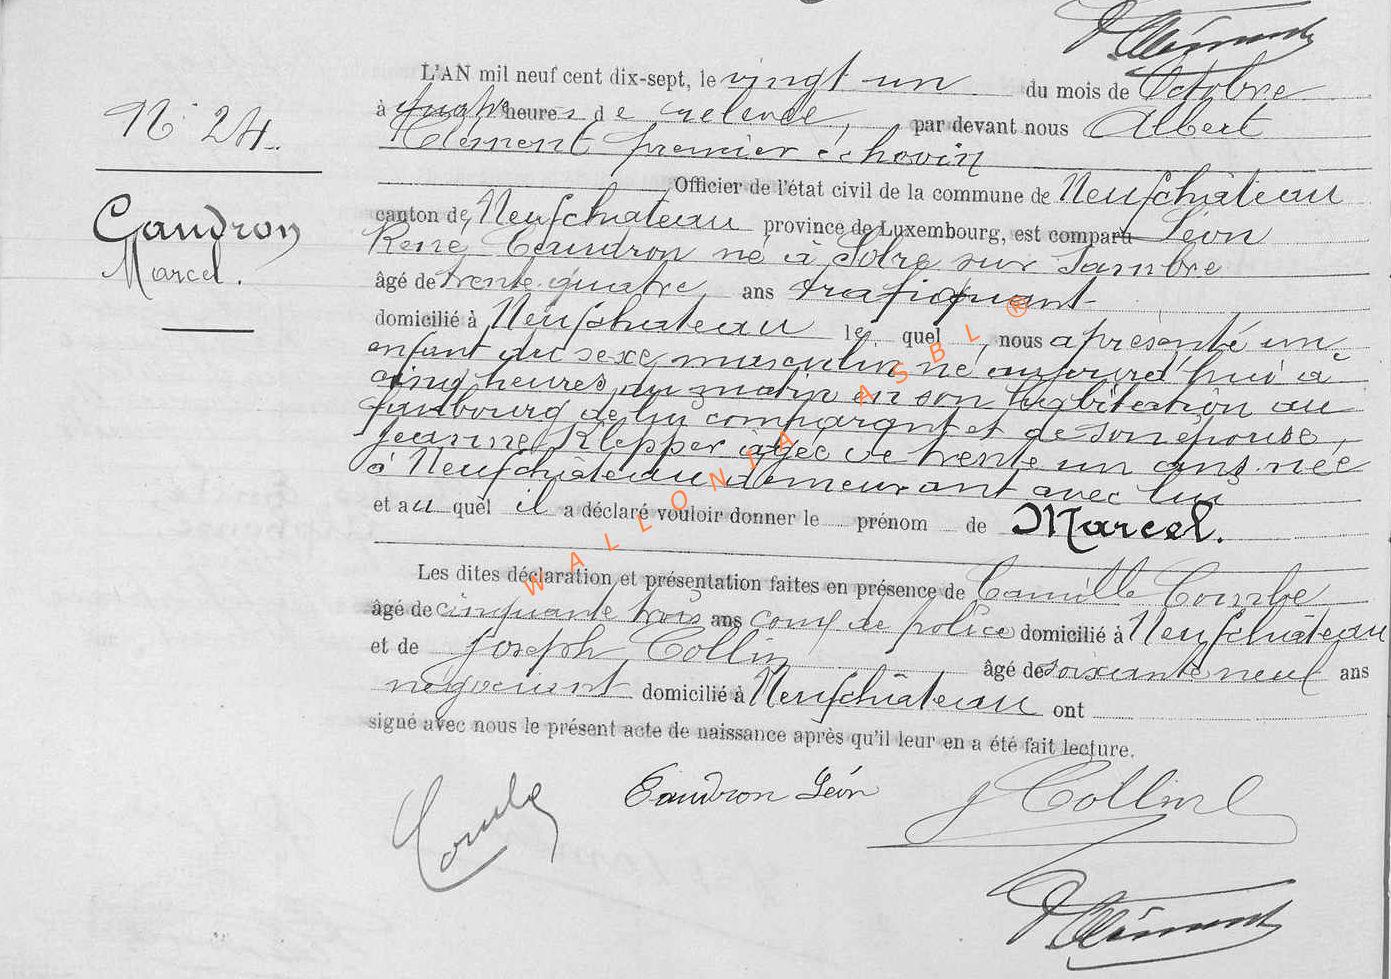 L'AN mil neuf cent dix-sept, le vingt un du mois de Octobre
à quatre heures de relevée, par devant nous Albert
Clément premier échevin
Officier de l'état civil de la commune de Neufchâteau
canton de Neufchateau province de Luxembourg, est comparu Léon
René Caudron né à Solre sur Sambre
âgé de trente quatre ans trafiquant
domicilié à Neufchateau lequel, nous a présenté un
enfant du sexe masculin né aujourd'hui à
cinq heures du matin en son habitation au
faubourg de lui comparant et de son épouse,
Jeanne Klepper agée de trente un ans née
à Neufchâteau demeurant avec lui
et au quel il a déclaré vouloir donner le prénom de Marcel.
Les dites déclaration et présentation faites en présence de Camille Combe
âgé de cinquante trois ans Comre de police domicilié à Neufchâteau
et de Joseph Collin âgé de soixante neuf ans
négociant domicilié à Neufchâteau ont
signé avec nous le présent acte de naissance après qu'il leur en a été fait lecture.
N° 24.
Caudron
Marcel.
Caudron Léon
J Collin
A Clément
WALLONIA ASBL ®